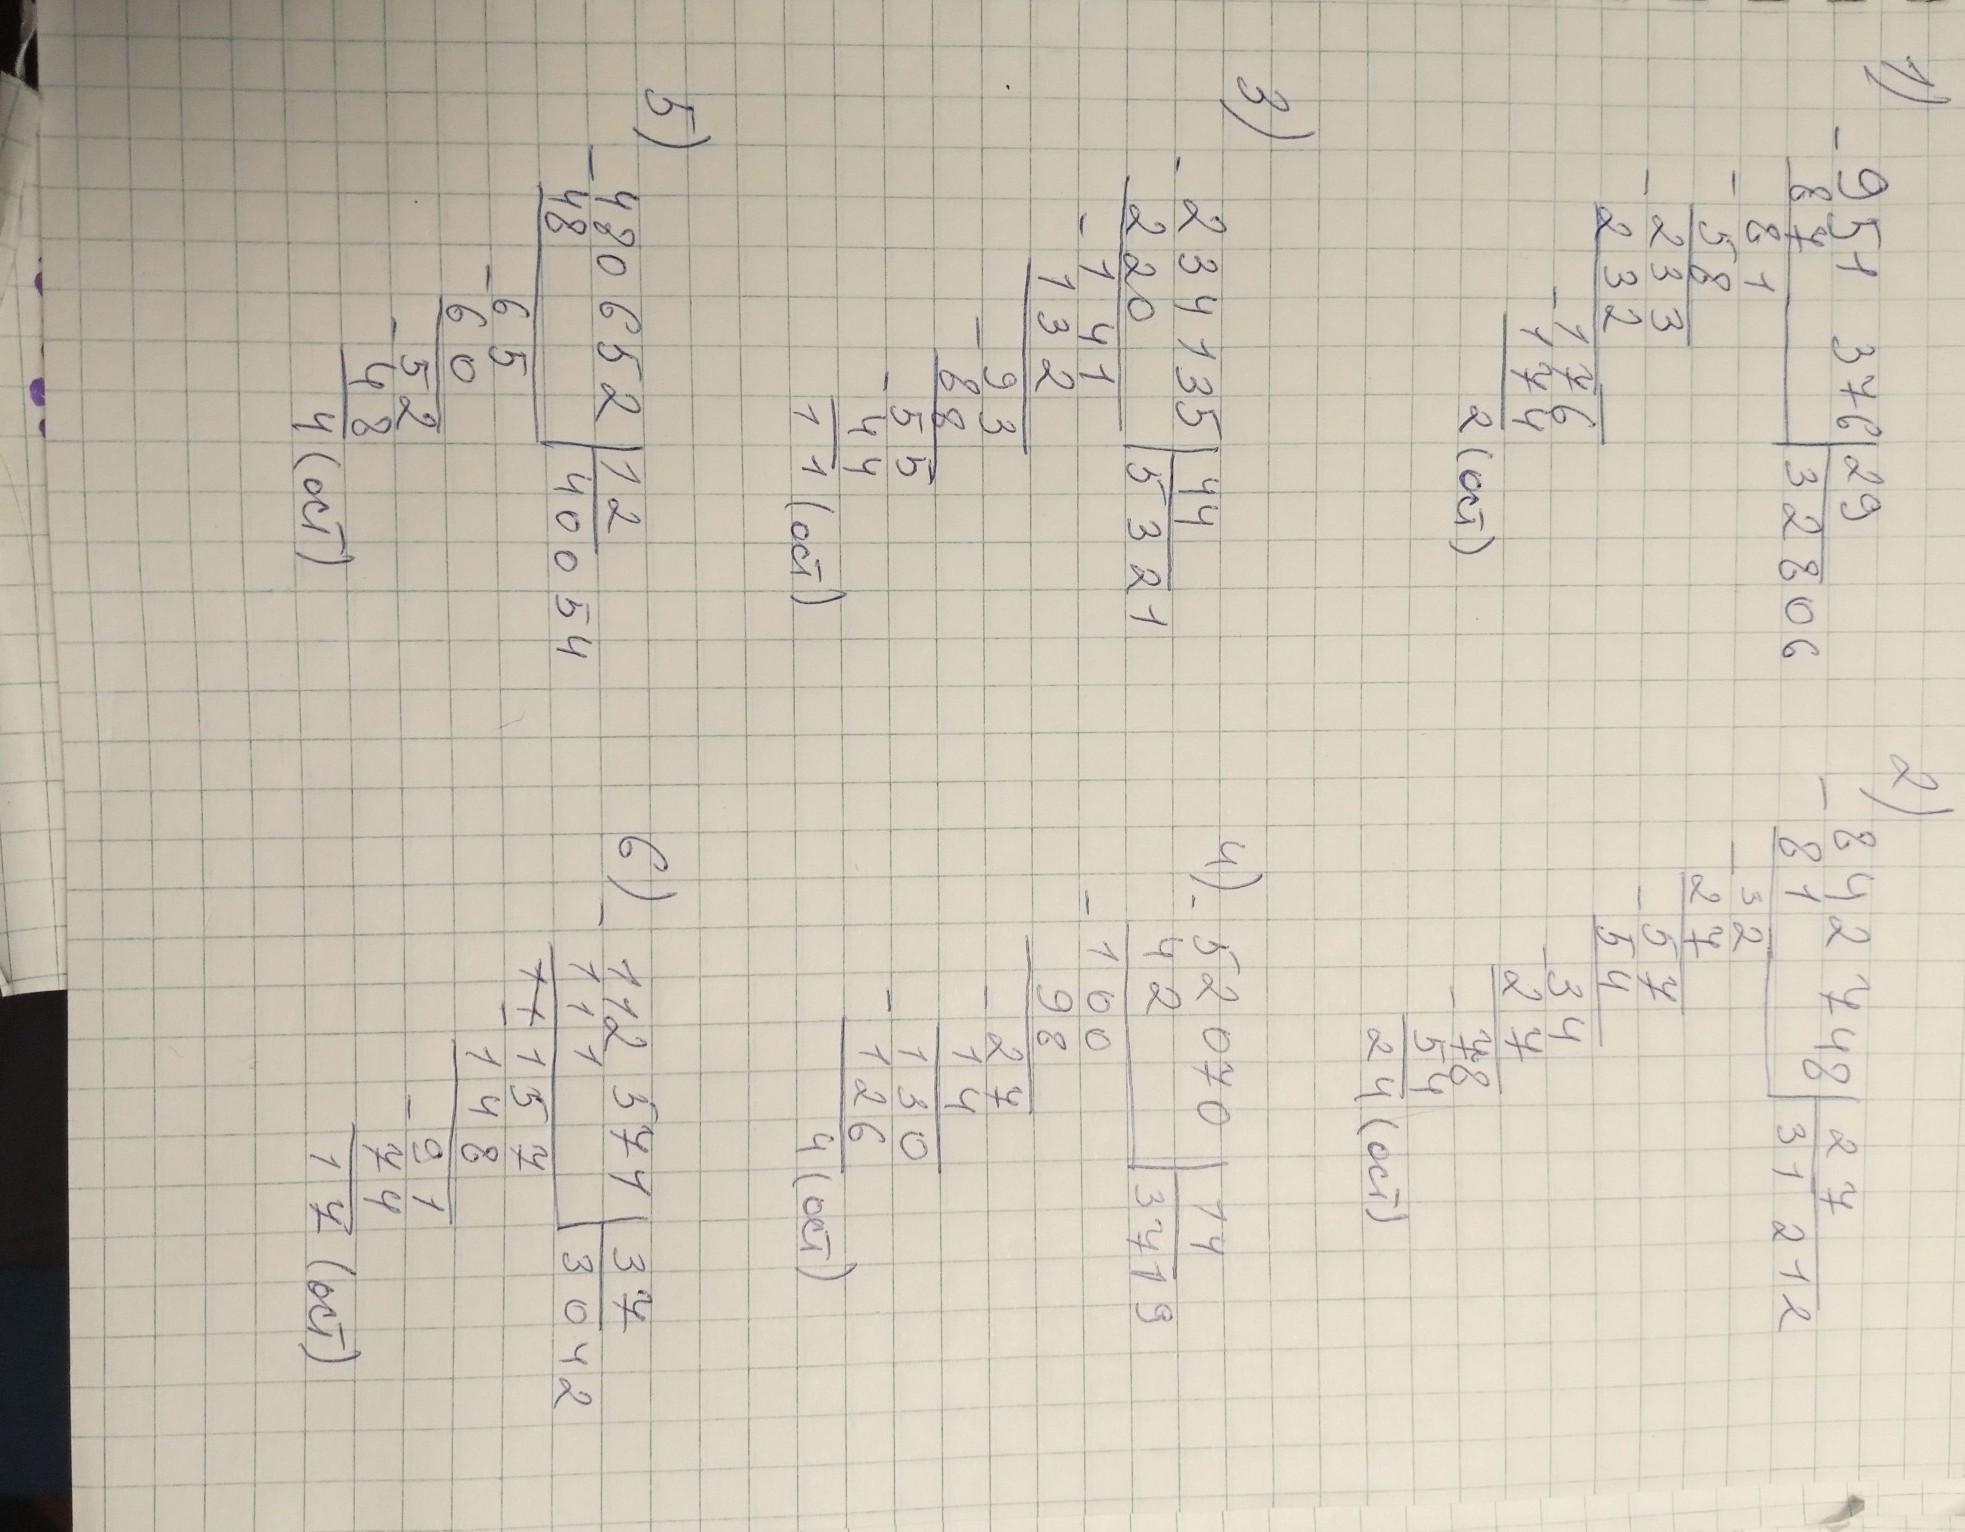 1)
- 951 376 | 29
87 | 32806
- 81
58
- 233
232
- 176
174
2 (ост)
2)
- 842748 | 27
81 | 31212
- 32
27
- 57
54
- 34
27
- 78
54
24 (ост)
3)
- 234135 | 44
220 | 5321
- 141
132
- 93
88
- 55
44
11 (ост)
4)
- 52070 | 14
42 | 3719
- 100
98
- 27
14
- 130
126
4 (ост)
5)
- 480652 | 12
48 | 40054
- 65
60
- 52
48
4 (ост)
6)
- 112 574 | 37
111 | 3042
- 157
148
- 91
74
17 (ост)